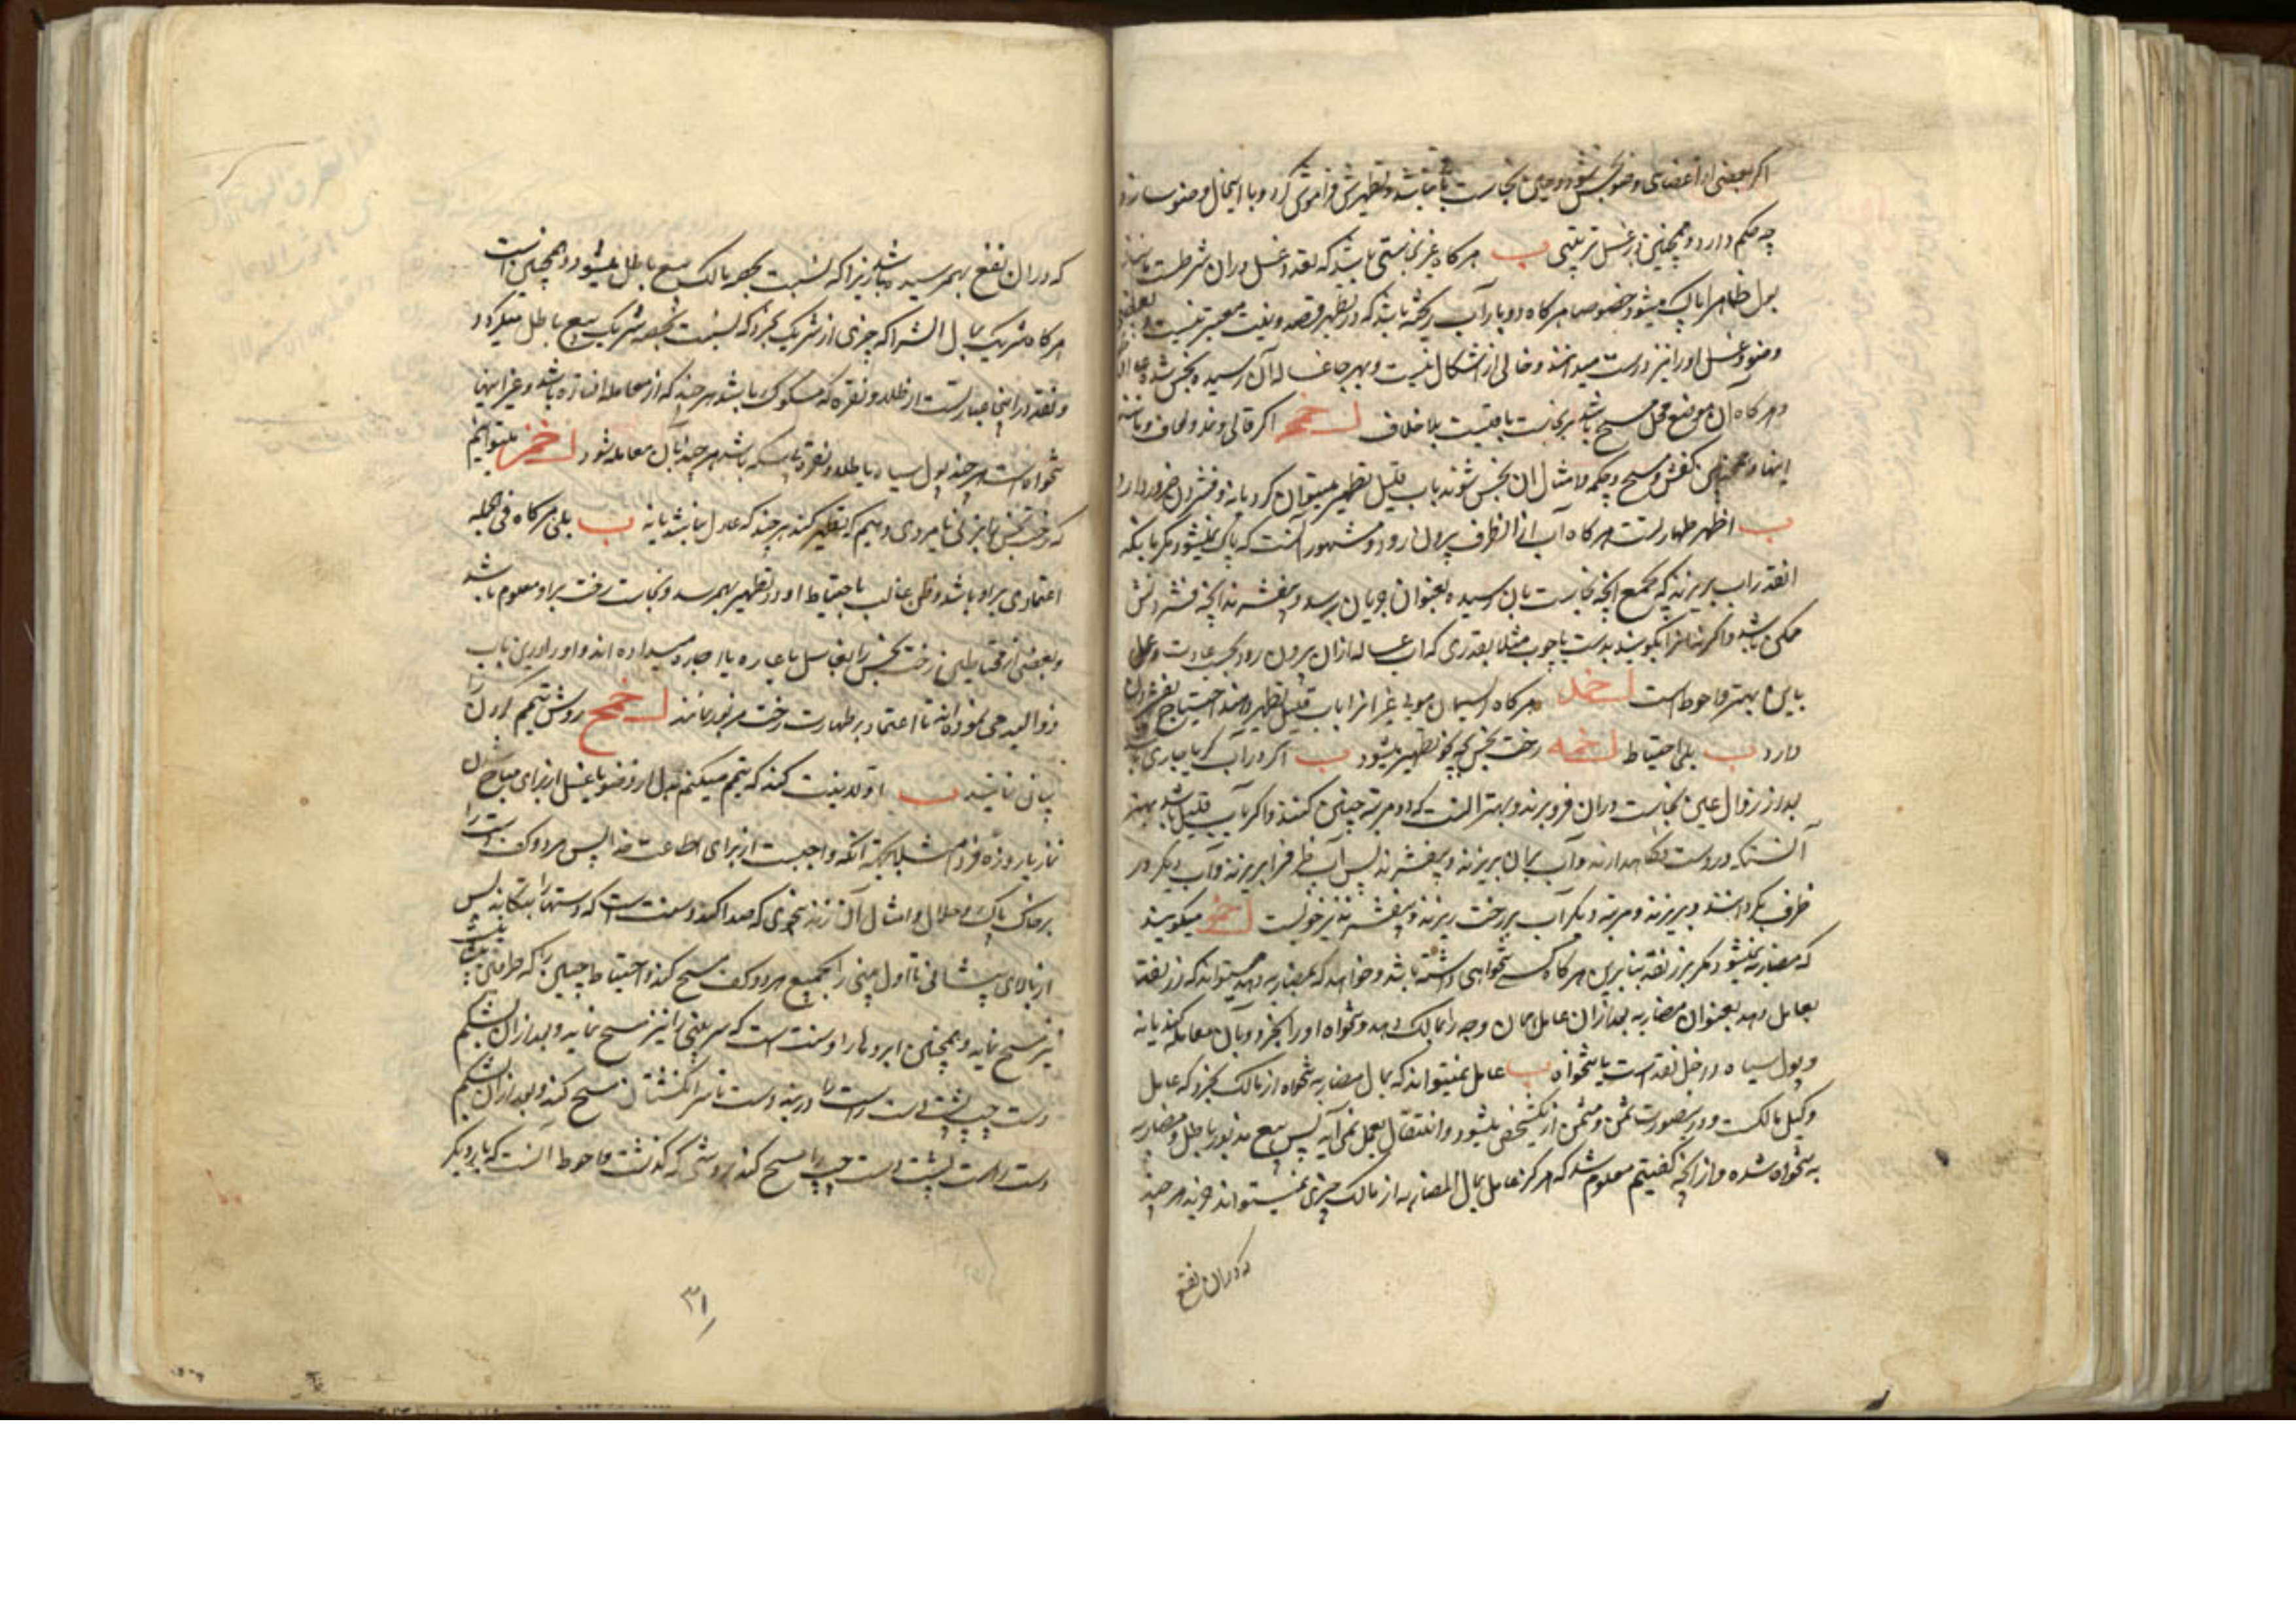 اکر بعضی از اعضای وضو نجس شود و عین نجاست باقی نباشد و تطهیرش فراموش کرد و با اینحال وضو سازد
چه حکم دارد و همچنین در غسل ترتیبی ب هرکاه غیر نجاستی باشد که تعدد غسل در ان شرطست مانند
بول ظاهرا پاک میشود خصوصا هرکاه دو بار آب ریخته باشد که در تطهیر قصد و نیت معتبر نیست و بعضی
وضو و غسل او را نیز درست میدانند و خالی از اشکال نیست و بهر جا غساله آن رسیده نجس شده
و هرکاه آن موضع محل مسح باشد بر نجاست باقیست بلا خلاف اکر قالی و نمد و لحاف و مانند
اینها و همچنین کفش و مسح و چکمه و امثال ان نجس شوند باب قلیل تطهیر میتوان کرد یا نه و فشردن ضرور دارد
ب اظهر طهارتست هرکاه آب از انطرف بیرون رود و مشهور آنست که پاک نمیشود مکر باینکه
انقدر آب بریزند که بجمیع آنچه نجاست بان رسیده بعنوان جریان برسد و بیفشرند آنچه فشردنش
ممکن باشد و اکر نه انرا بکوبند بدست یا چوب مثلا بقدری که آب غساله ازان بیرون رود بحسب عادت و عمل
باین بهتر و احوط است هرکاه ریسمان مویی غیر انرا باب قلیل تطهیر دهند احتیاج بفشردن
دارد ب بلی احتیاط رخت نجس چه نحو تطهیر میشود ب اکر در آب کر یا جاری باشد
بعد از زوال عین نجاست دران فرو برند و بهتر انست که دو مرتبه چنین کنند و اکر باب قلیل باشد بهتر
آنستکه در دست نکاهدارند و آب بران بریزند و بیفشرند پس آب ظرف را بریزند و آب دیکر در
ظرف بکر داشته و بریزند و مرتبه دیکر آب بر رخت ریزند و بیفشرند نیز خوبست میکویند
که مضاربه نمیشود مکر بزر نقد بنابرین هرکاه کسی تنخواهی داشته باشد و خواهد که بمضاربه دهد میتواند که زر نقد
بعامل دهد بعنوان مضاربه بعد ازان عامل همان وجه را بمالک دهد و تنخواه او را بخرد و بان معامله کند یا نه
و پول سیاه داخل نقد است یا تنخواه ب عامل نمیتواند که بمال مضاربه تنخواه از مالک بخرد که عامل
وکیل مالکست و درینصورت ثمن و مثمن از یکشخص میشود و انتقال بعمل نمی آید پس بیع مذبور باطل و مضاربه
به تنخواه شده و از آنچه کفتیم معلوم شد که هرکز عامل بمال المضاربه از مالک چیزی نمیتواند خرید هر چند
که دران نفع
که دران نفع بهمرسیده باشد زیرا که نسبت بحصه مالک بیع باطل میشود و همچنین است
هرکاه شریک بمال الشراکه چیزی از شریک بخرد که نسبت بحصه شریک بیع باطل میکردد
و نقد در اینجا عبارتست از طلا و نقره که مسکوک باشد هر چند که از معامله افتاده باشد و غیر اینها
تنخواه است هر چند پول سیاه یا طلا و نقره بی سکه باشد هر چند بان معامله شود میتوانیم
که رخت نجس را بزنی یا مردی دهیم که تطهیر کند هر چند که عادل نباشد یا نه ب بلی هرکاه فی الجمله
اعتمادی بر او باشد و ظن غالب باحتیاط او در تطهیر بهمرسد و نجاست رخت بر او معلوم باشد
و بعضی از محتاطین رخت نجس را بغاسل یا اجاره میداده اند و او را درین باب
ذو الید می نموده اند تا اعتماد بر طهارت رخت مزبور نمایند روش تیمم کردن را
بیان نمائید ب اولا نیت کند که تیمم میکنم بدل از وضو یا غسل از برای مباح شدن
نماز یا روزه فردا مثلا بجهة آنکه واجبست از برای اطاعت خدا پس هر دو کف دست را
بر خاک پاک و حلال و امثال آن زند بنحوی که صدا کند و سنت است که دستها را بتکاند پس
از بالای پیشانی تا اول بینی را بجمیع هر دو کف مسح کند و احتیاط چنین را که طرفین پیشانیست
نیز مسح نماید و همچنین ابروها را و سنت است که سر بینی را نیز مسح نماید و بعد ازان بشکم
دست چپ پشت دست راست را از بند دست تا سر انکشتان مسح کند و بعد ازان بشکم
دست راست پشت دست چپ را مسح کند بروشی که کذشت و احوط آنست که بار دیکر
۳۱